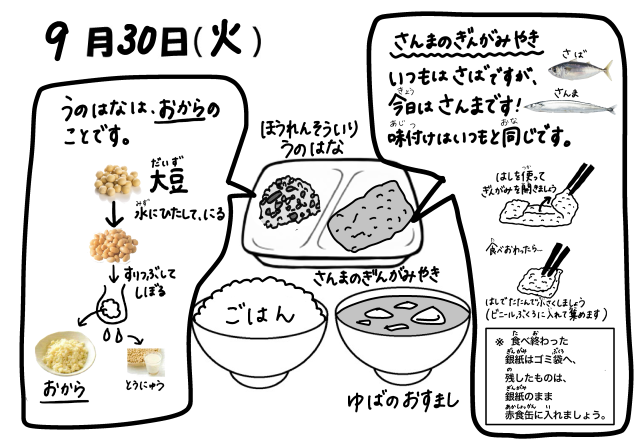 9月30日(火)
うのはなは、おからの
ことです。
だいず
大豆
みず
水にひたして、にる
すりつぶして
しぼる
おから
とうにゅう
ほうれんそういり
うのはな
さんまのぎんがみやき
ごはん
ゆばのおすまし
さんまのぎんがみやき
いつもはさばですが、
きょう
今日はさんまです!
あじつ おな
味付けはいつもと同じです。
さば
さんま
つか
はしを使って
ぎんがみを開きましょう
食べおわったら…
はしでたたんで小さくしましょう
(ビニールぶくろに入れて集めます)
た お
※ 食べ終わった
ぎんがみ ぶくろ
銀紙はゴミ袋へ、
の
残したものは、
ぎんがみ
銀紙のまま
あかしょっかん い
赤食缶に入れましょう。